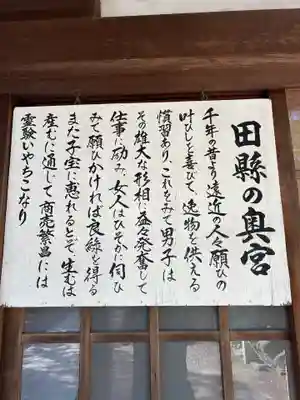 田縣の奥宮
千年の昔より遠近の人々願ひの
叶ひしを喜びて、逸物を供える
慣習あり、これをみて男子は
その雄大な形相に益々発奮して
仕事に励み、女人はひそかに伺ひ
みて願ひかければ良縁を得る
また子宝に恵れるとぞ、生むは
産むに通じて商売繁昌には
霊験いやちこなり